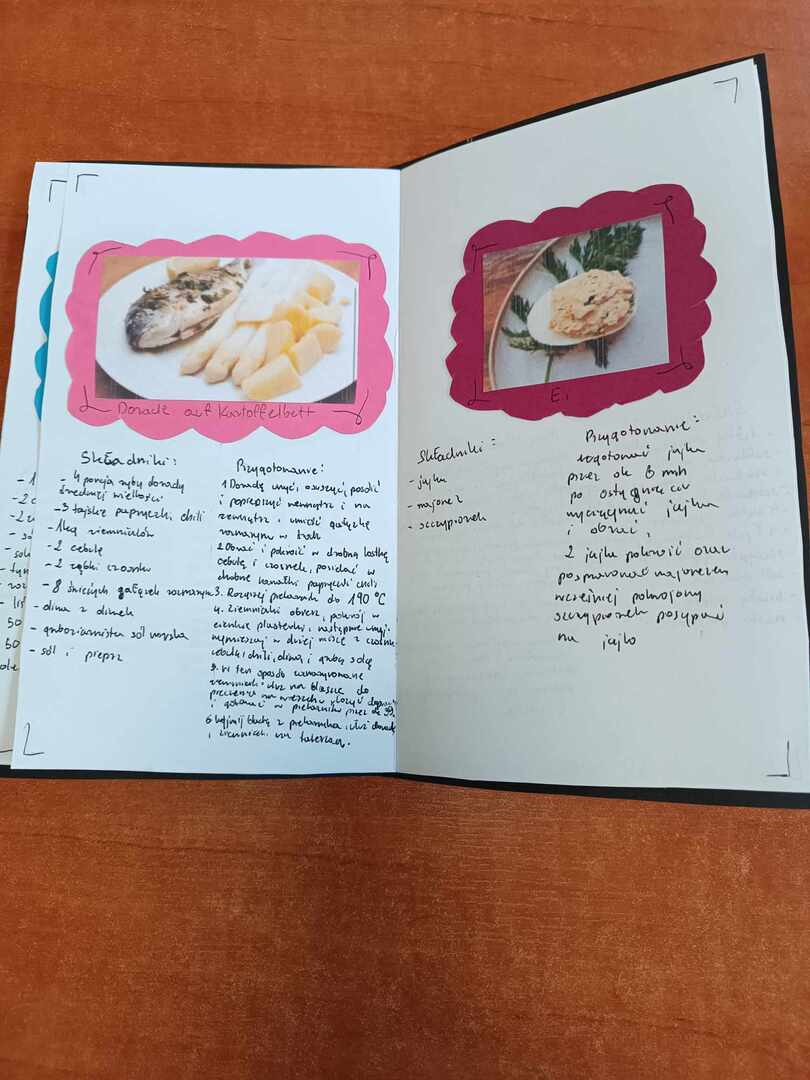 Dorade auf Kartoffelbett
Składniki:
- 4 porcje ryby dorady
średniej wielkości
- 3 tajskie papryczki chili
- 1kg ziemniaków
- 2 cebule
- 2 ząbki czosnku
- 8 świeżych gałązek rozmarynu
- oliwa z oliwek
- gruboziarnista sól morska
- sól i pieprz
Przygotowanie:
1 Doradę umyć, osuszyć, posolić
i popieprzyć wewnątrz i na
zewnątrz i umieść gałązkę
rozmarynu w
2 Obrać i pokroić w drobną kostkę
cebulę i czosnek, posiekać w
drobne kawałki papryczki chili
3. Rozgrzej piekarnik do 190 °C
4. ziemniaki obierz, pokrój w
cienkie plasterki, następnie umyj i
wymieszaj w dużej misce z czosnkiem
cebulą i chili, oliwą i grubą solą
5. W ten sposób
ziemniaki ułóż na blasze do
pieczenia na wierzchu ułożyć
i gotować w piekarniku przez ok
6 wyjmij blachę z piekarnika, ułóż doradę
i ziemniaki na talerzu.
2
Ei
Składniki:
- jajka
- majonez
- szczypiorek
Przygotowanie:
ugotować jajka
przez ok 8 min
po ostygnięciu
wyciągnąć jajka
i obrać,
2 jajka pokroić oraz
posmarować majonezem
wcześniej pokrojony
szczypiorek posypać
na jajko
- 1
- 2
- 2
- so
- sok
- tym
- roz
- li
50
50